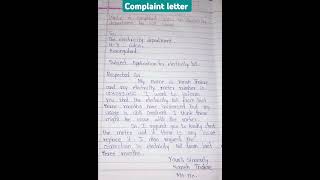 Complaint letter
Write a complaint letter to electricity
department for bill issue
To
The electricity department
Subject: Application for electricity bill.
Respected Sir,
My name is Harsh Jadhav
and my electricity meter number is
I want to inform
you that the electricity bill from last
three months have increased but my
usage is still constant. I think there
might be issue with the meter.
So, I request you to kindly check
the meter and if there is any issue
replace it. I also request the
correction in electricity bill from last
three months.
Yours Sincerely
Harsh Jadhav